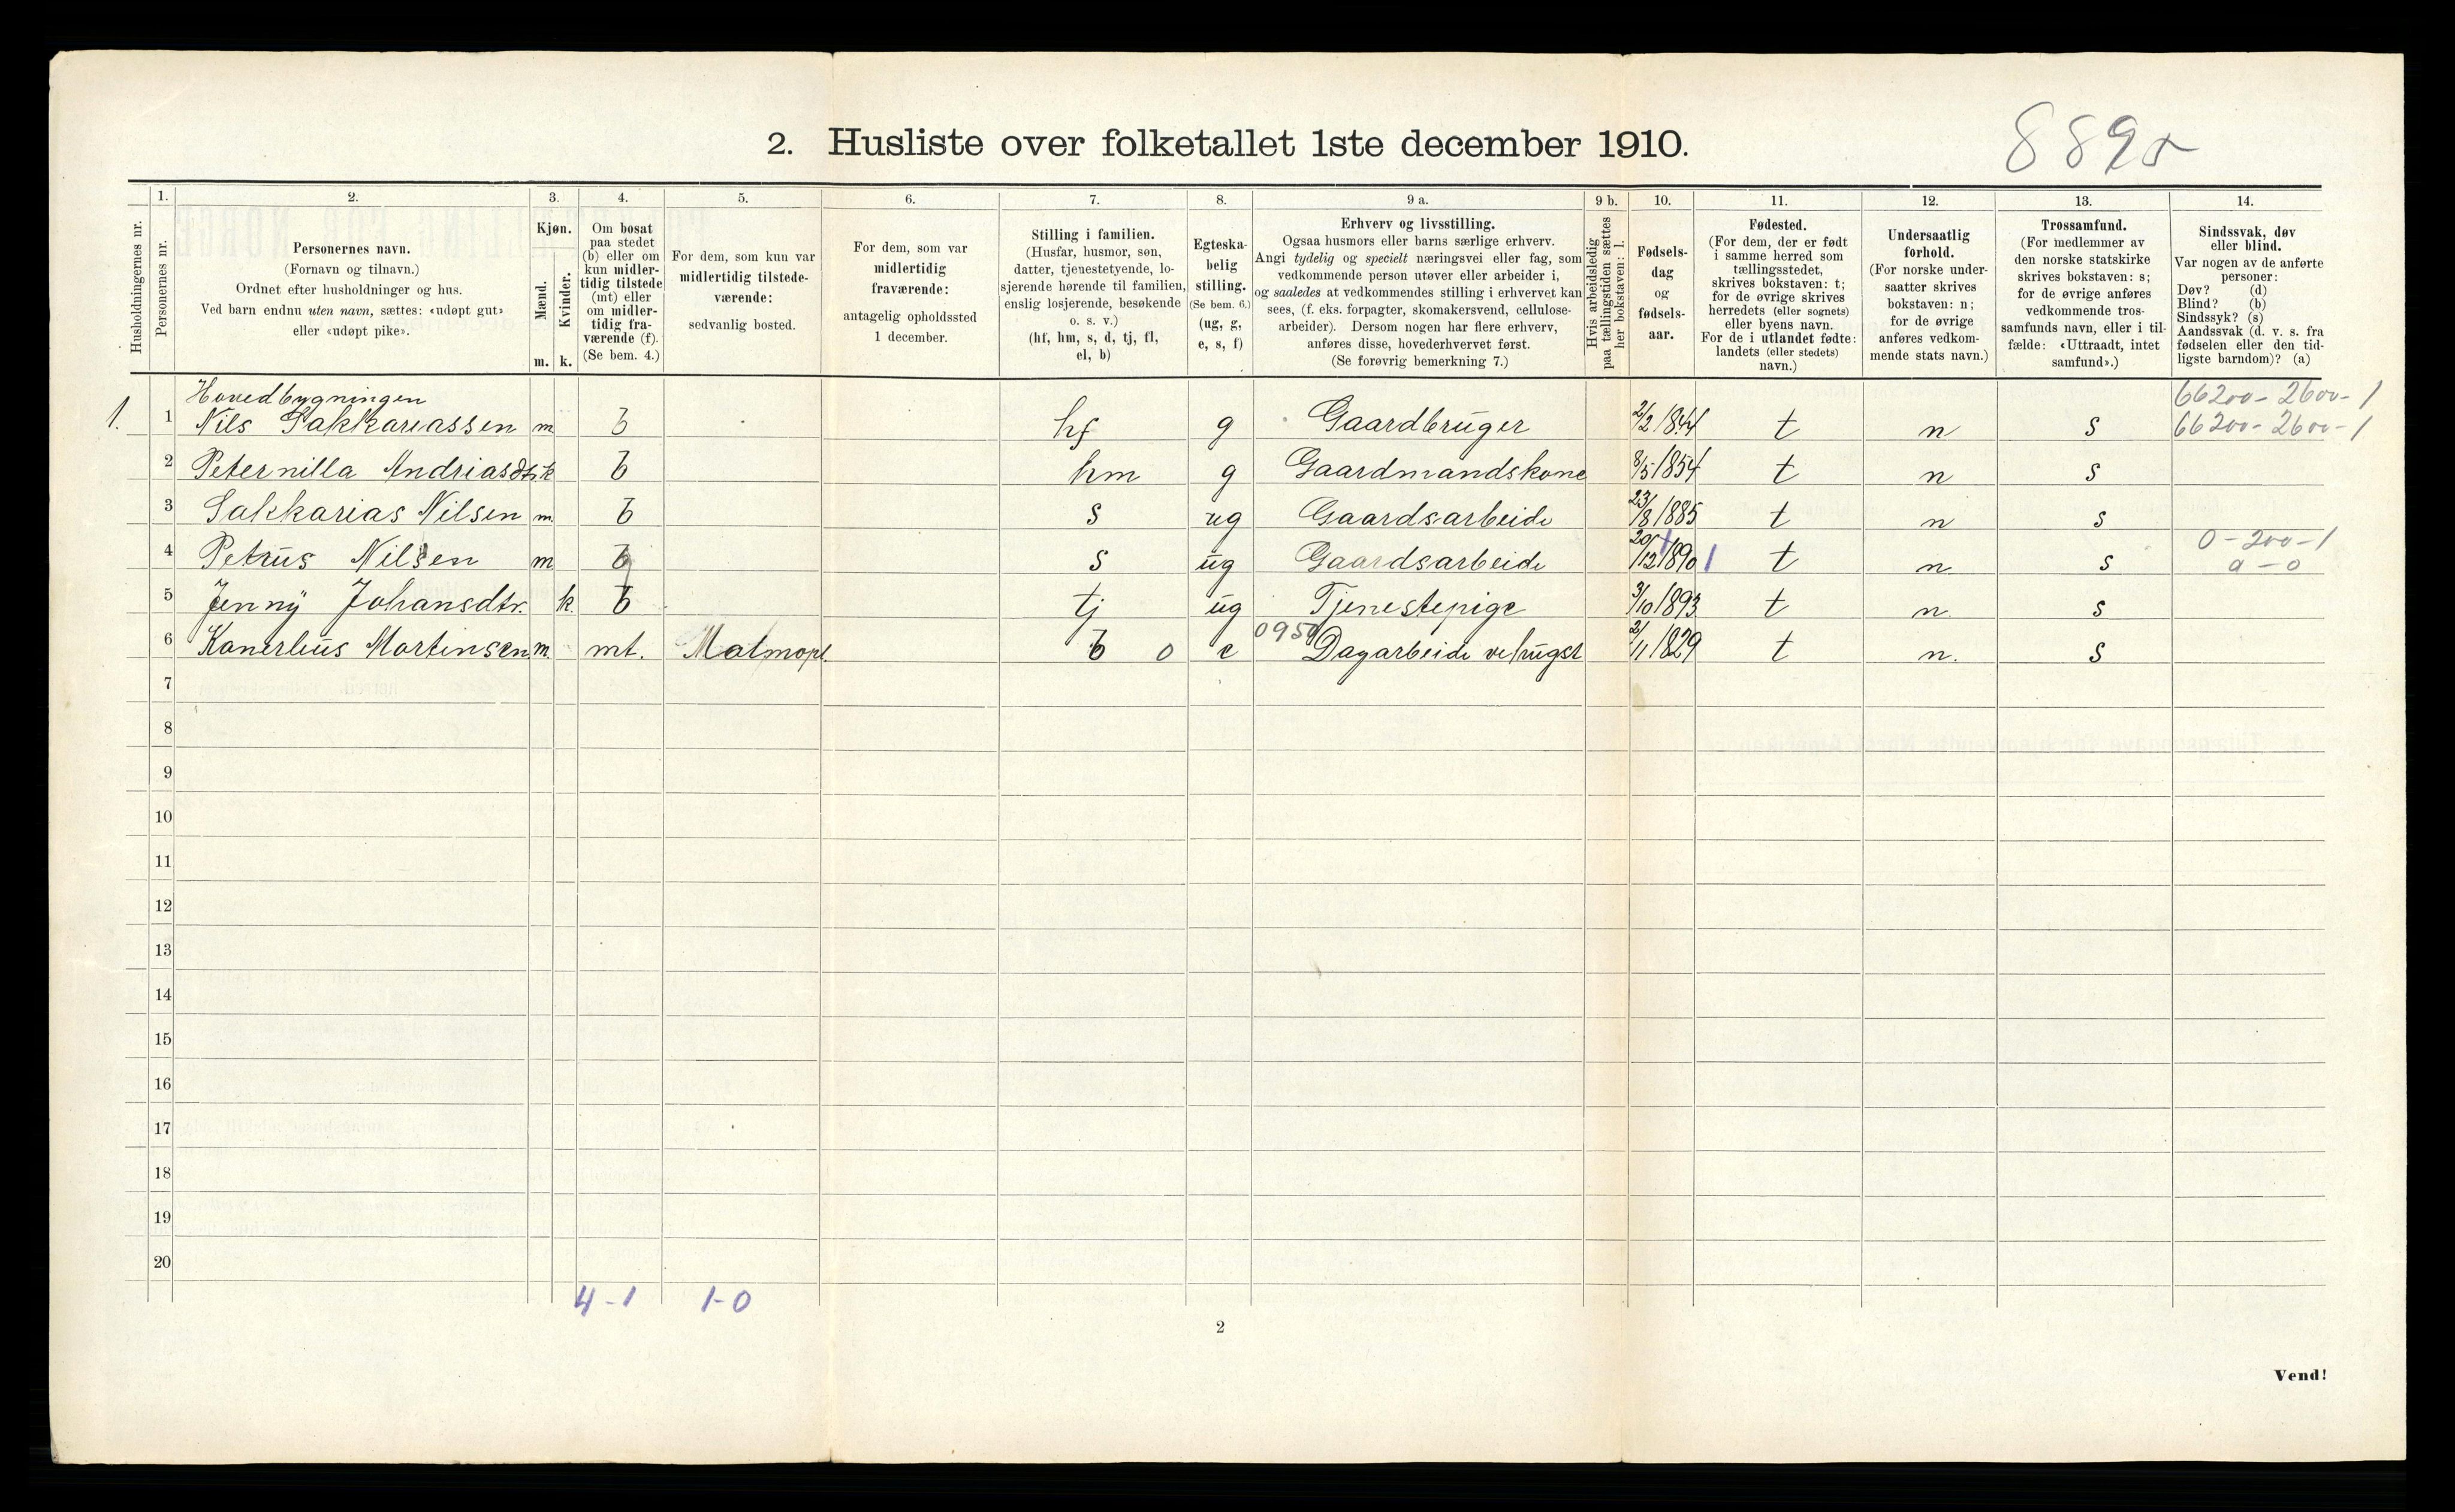 2. Husliste over folketallet 1ste december 1910.
8895
Husholdningernes nr.
1.
Personernes nr.
2.
Personernes navn.
(Fornavn og tilnavn.)
Ordnet efter husholdninger og hus.
Ved barn endnu uten navn, sættes: «udøpt gut»
eller «udøpt pike».
3.
Kjøn.
Mænd.
Kvinder.
m. k.
4.
Om bosat
paa stedet
(b) eller om
kun midler-
tidig tilstede
(mt) eller
om midler-
tidig fra-
værende (f).
(Se bem. 4.)
5.
For dem, som kun var
midlertidig tilstede-
værende:
sedvanlig bosted.
6.
For dem, som var
midlertidig
fraværende:
antagelig opholdssted
1 december.
7.
Stilling i familien.
(Husfar, husmor, søn,
datter, tjenestetyende, lo-
sjerende hørende til familien,
enslig losjerende, besøkende
o. s. v.)
(hf, hm, s, d, tj, fl,
el, b)
8.
Egteska-
belig
stilling.
(Se bem. 6.)
(ug, g,
e, s, f)
9 a.
Erhverv og livsstilling.
Ogsaa husmors eller barns særlige erhverv.
Angi tydelig og specielt næringsvei eller fag, som
vedkommende person utøver eller arbeider i,
og saaledes at vedkommendes stilling i erhvervet kan
sees, (f. eks. forpagter, skomakersvend, cellulose-
arbeider). Dersom nogen har flere erhverv,
anføres disse, hovederhvervet først.
(Se forøvrig bemerkning 7.)
9 b.
Hvis arbeidsledig
paa tællingstiden sættes
her bokstaven: l.
10.
Fødsels-
dag
og
fødsels-
aar.
11.
Fødested.
(For dem, der er født
i samme herred som
tællingsstedet,
skrives bokstaven: t;
for de øvrige skrives
herredets (eller sognets)
eller byens navn.
For de i utlandet fødte:
landets (eller stedets)
navn.)
12.
Undersaatlig
forhold.
(For norske under-
saatter skrives
bokstaven: n;
for de øvrige
anføres vedkom-
mende stats navn.)
13.
Trossamfund.
(For medlemmer av
den norske statskirke
skrives bokstaven: s;
for de øvrige anføres
vedkommende tros-
samfunds navn, eller i til-
fælde: «Uttraadt, intet
samfund».)
14.
Sindssvak, døv
eller blind.
Var nogen av de anførte
personer:
Døv? (d)
Blind? (b)
Sindssyk? (s)
Aandssvak (d. v. s. fra
fødselen eller den tid-
ligste barndom)? (a)
Hovedbygningen 66200-2600-1
1. 1 Nils Sakkariassen m b hf g Gaardbruger 2/2 1844 t n s 66200-2600-1
2 Peternilla Andriasdtr k b hm g Gaardmandskone 8/5 1854 t n s
3 Sakkarias Nilsen m. b s ug Gaardsarbeide 23/8 1885 t n s
0-200-1
4 Petrus Nilsen m b s ug Gaardsarbeide 20/12 1890 1 t n s a-0
5 Jenny Johansdtr. k. b tj ug Tjenestepige 3/10 1893 t n. s
6 Martinsen m. mt. b 0 e 0950 Dagarbeide 2/11 1829 t n. s
7
8
9
10
11
12
13
14
15
16
17
18
19
20
4-1 1-0
2
Vend!